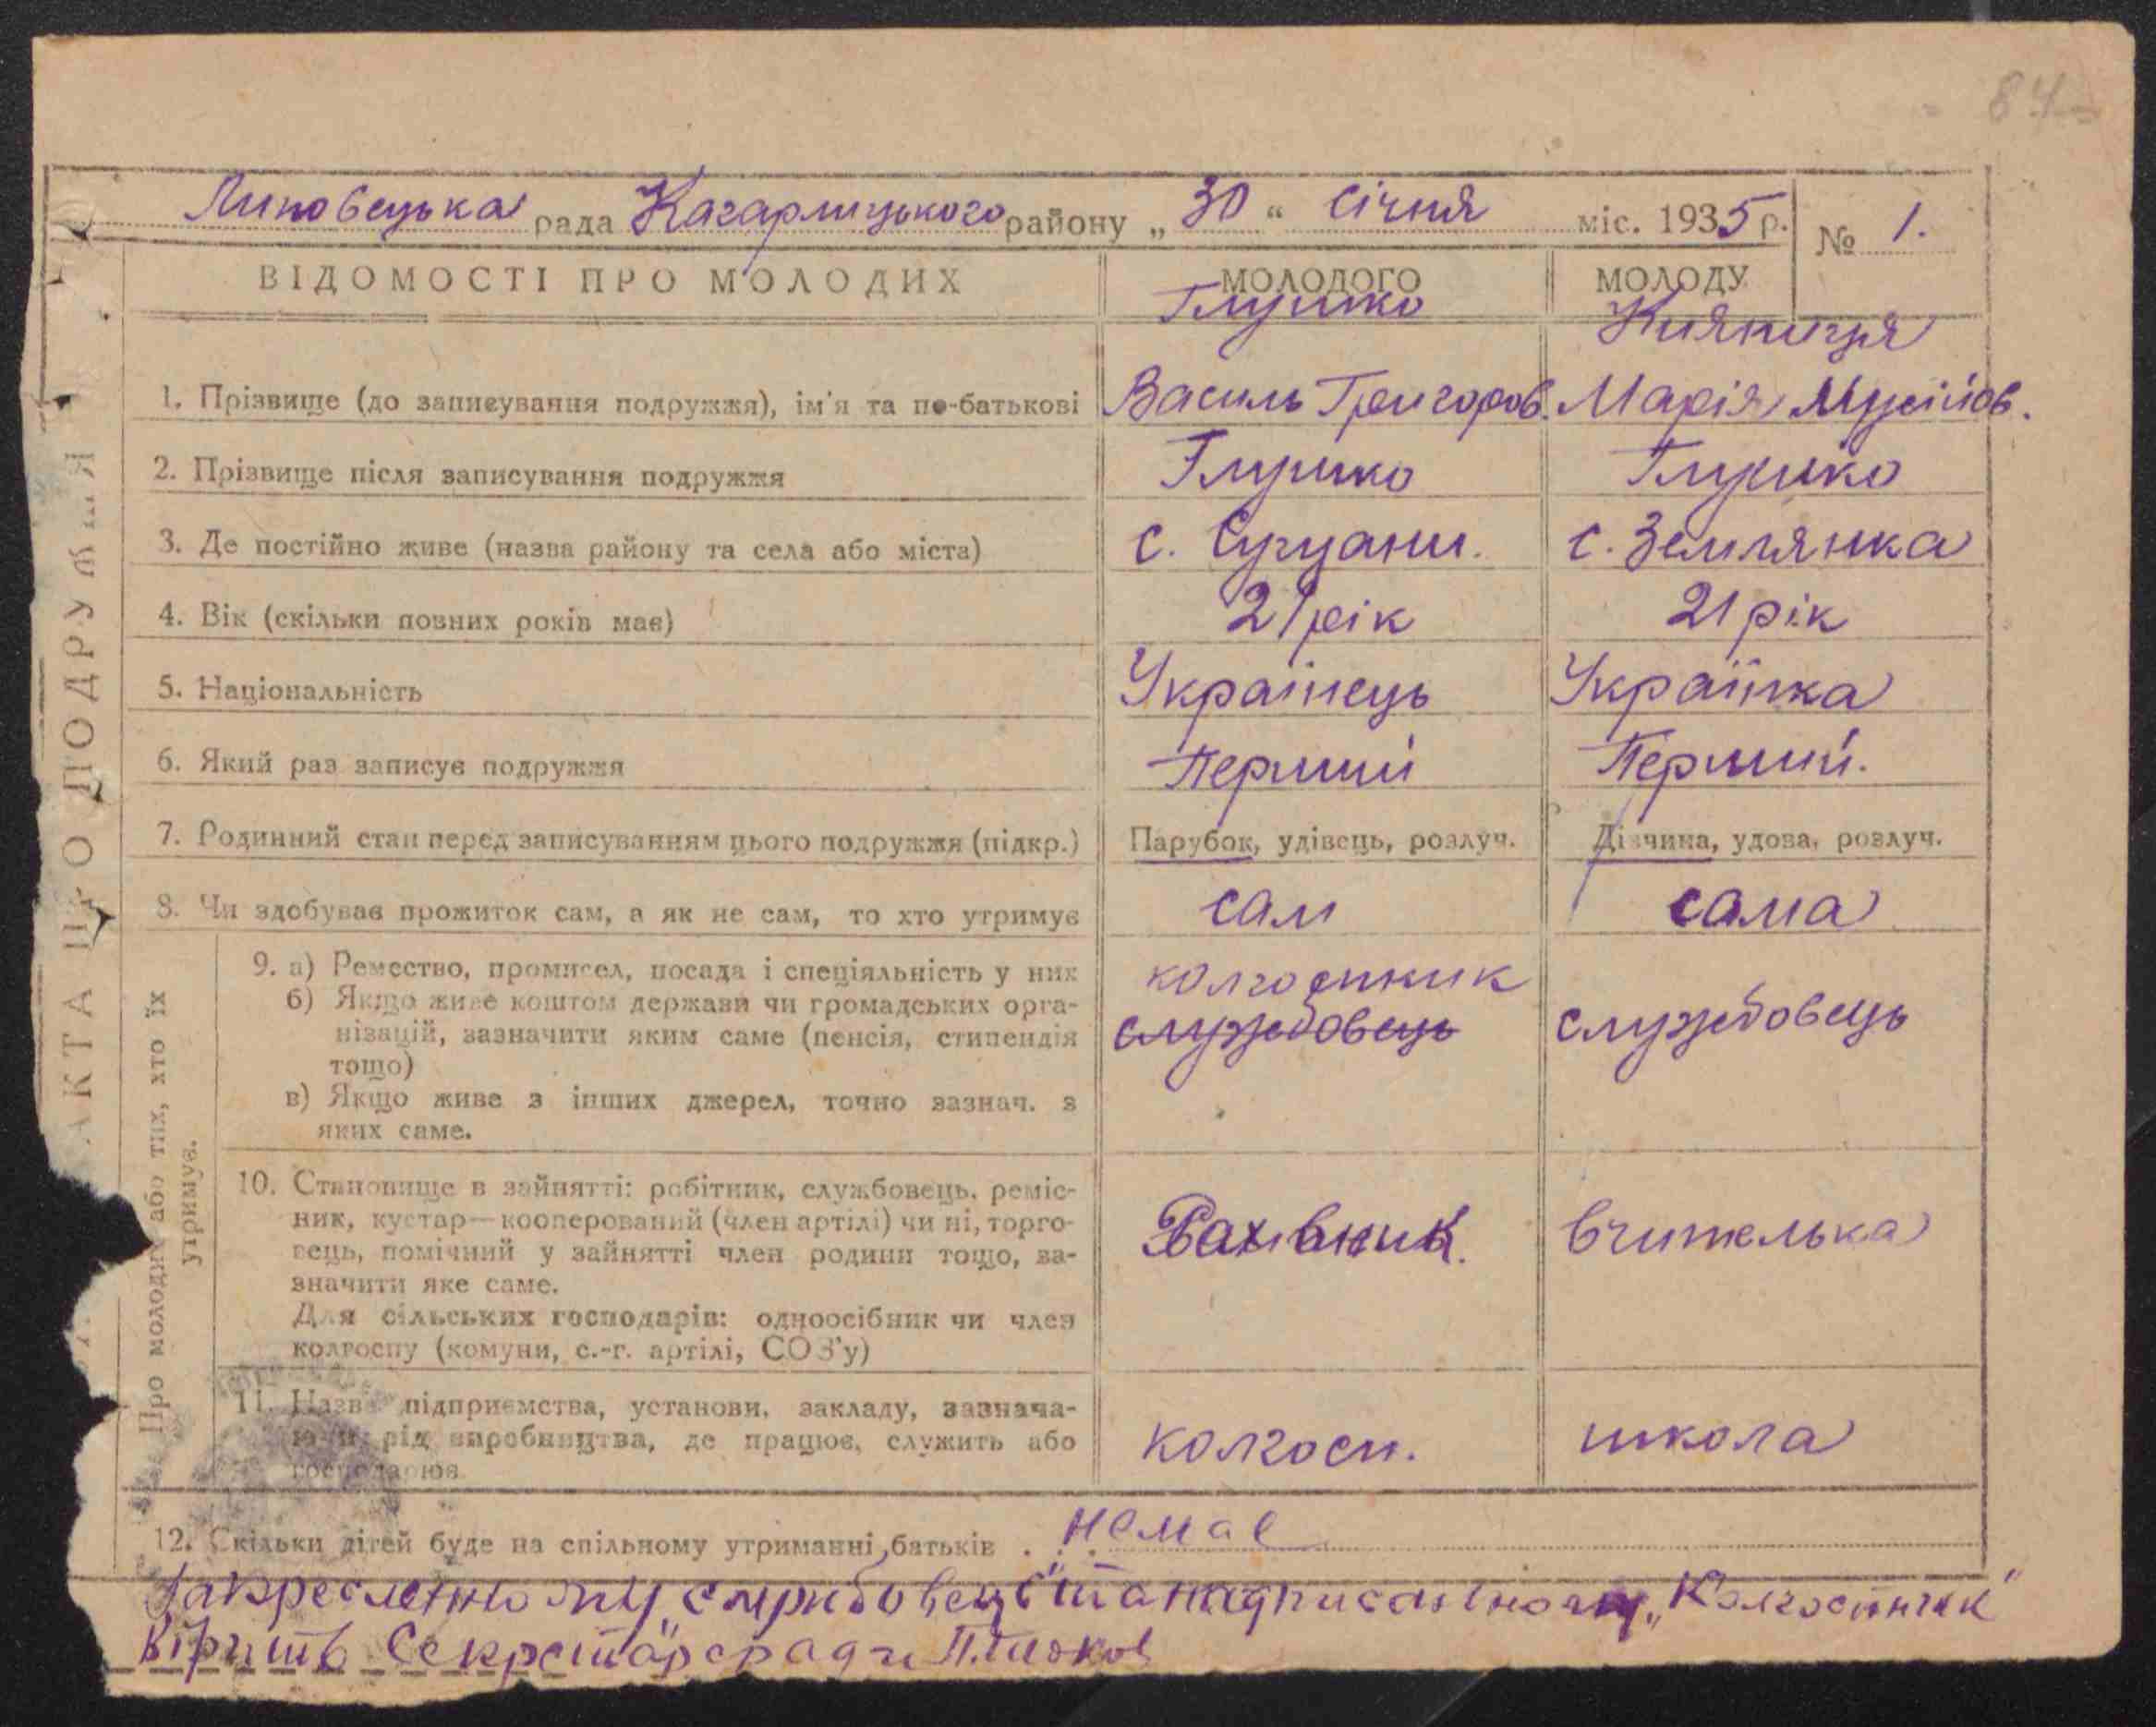 84
Липовецька рада Кагарлицького району „ 30 “ січня міс. 1935 р. № 1.
ВІДОМОСТІ ПРО МОЛОДИХ МОЛОДОГО МОЛОДУ
Глушко Княниця
1. Прізвище (до записування подружжя), ім'я та по-батькові Василь Григоров. Марія Мусійов.
2. Прізвище після записування подружжя Глушко Глушко
3. Де постійно живе (назва району та села або міста) с. Сущани. с. Землянка
4. Вік (скільки повних років має) 21 рік 21 рік
5. Національність Українець Українка
6. Який раз записує подружжя Перший Перший.
7. Родинний стан перед записуванням цього подружжя (підкр.) Парубок, удівець, розлуч. Дівчина, удова, розлуч.
8. Чи здобував прожиток сам, а як не сам, то хто утримує сам сама
Про молодих або тих, хто їх утримує.
9. а) Ремество, промисел, посада і спеціяльність у них колгоспник
б) Якщо живе коштом держави чи громадських орга-
нізацій, зазначити яким саме (пенсія, стипендія службовець службовець
тощо)
в) Якщо живе з інших джерел, точно зазнач. з
яких саме.
10. Становище в зайнятті: робітник, службовець, реміс-
ник, кустар—кооперований (член артілі) чи ні, торго- Рахівник. вчителька
вець, помічний у зайнятті член родини тощо, за-
значити яке саме.
Для сільських господарів: одноосібник чи член
колгоспу (комуни, с.-г. артілі, СОЗ'у)
11. Назва підприємства, установи, закладу, зазнача-
ючи рід виробництва, де працює, служить або колгосп. школа
господарює
12. Скільки дітей буде на спільному утриманні батьків . немає
Закресленному „службовець“ та надписаному „Колгоспник“
вірить Секретар сради
АКТА ПРО ПОДРУЖЖЯ